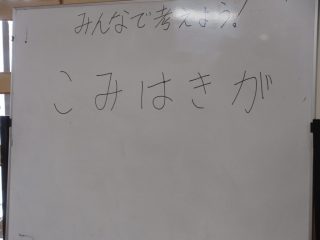 みんなで考えよう!
こみはきが